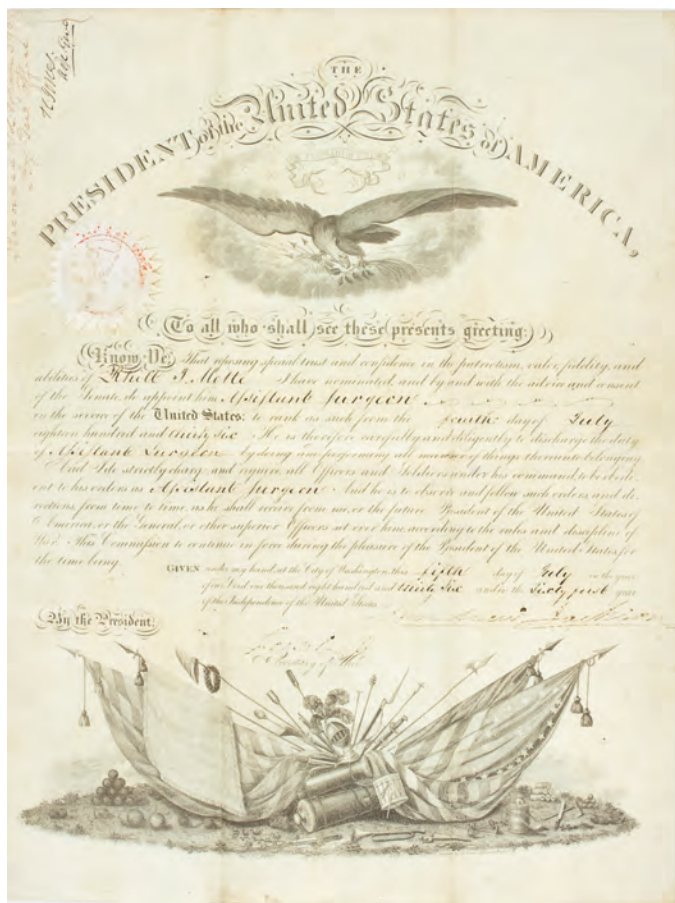 THE
PRESIDENT of the United States of AMERICA,
To all who shall see these presents greeting:
Know Ye, That reposing special trust and confidence in the patriotism, valor, fidelity, and
abilities of I have nominated, and by and with the advice and consent
of the Senate, do appoint him Assistant Surgeon
in the service of the United States: to rank as such from the fourth day of July
eighteen hundred and thirty six. He is therefore carefully and diligently to discharge the duty
of Assistant Surgeon by doing and performing all manner of things thereunto belonging.
And I do strictly charge, and require all Officers and Soldiers under his command, to be obedi-
ent to his orders as Assistant Surgeon And he is to observe and follow such orders, and di-
rections, from time to time, as he shall receive from me, or the future President of the United States of
America, or the General, or other superior Officers set over him, according to the rules and discipline of
War. This Commission to continue in force during the pleasure of the President of the United States, for
the time being.
GIVEN under my hand, at the City of Washington, this fifth day of July in the year
of our Lord, one thousand eight hundred and thirty six and in the sixty first year
of the Independence of the United States.
By the President,
Andrew Jackson
Secretary of War.